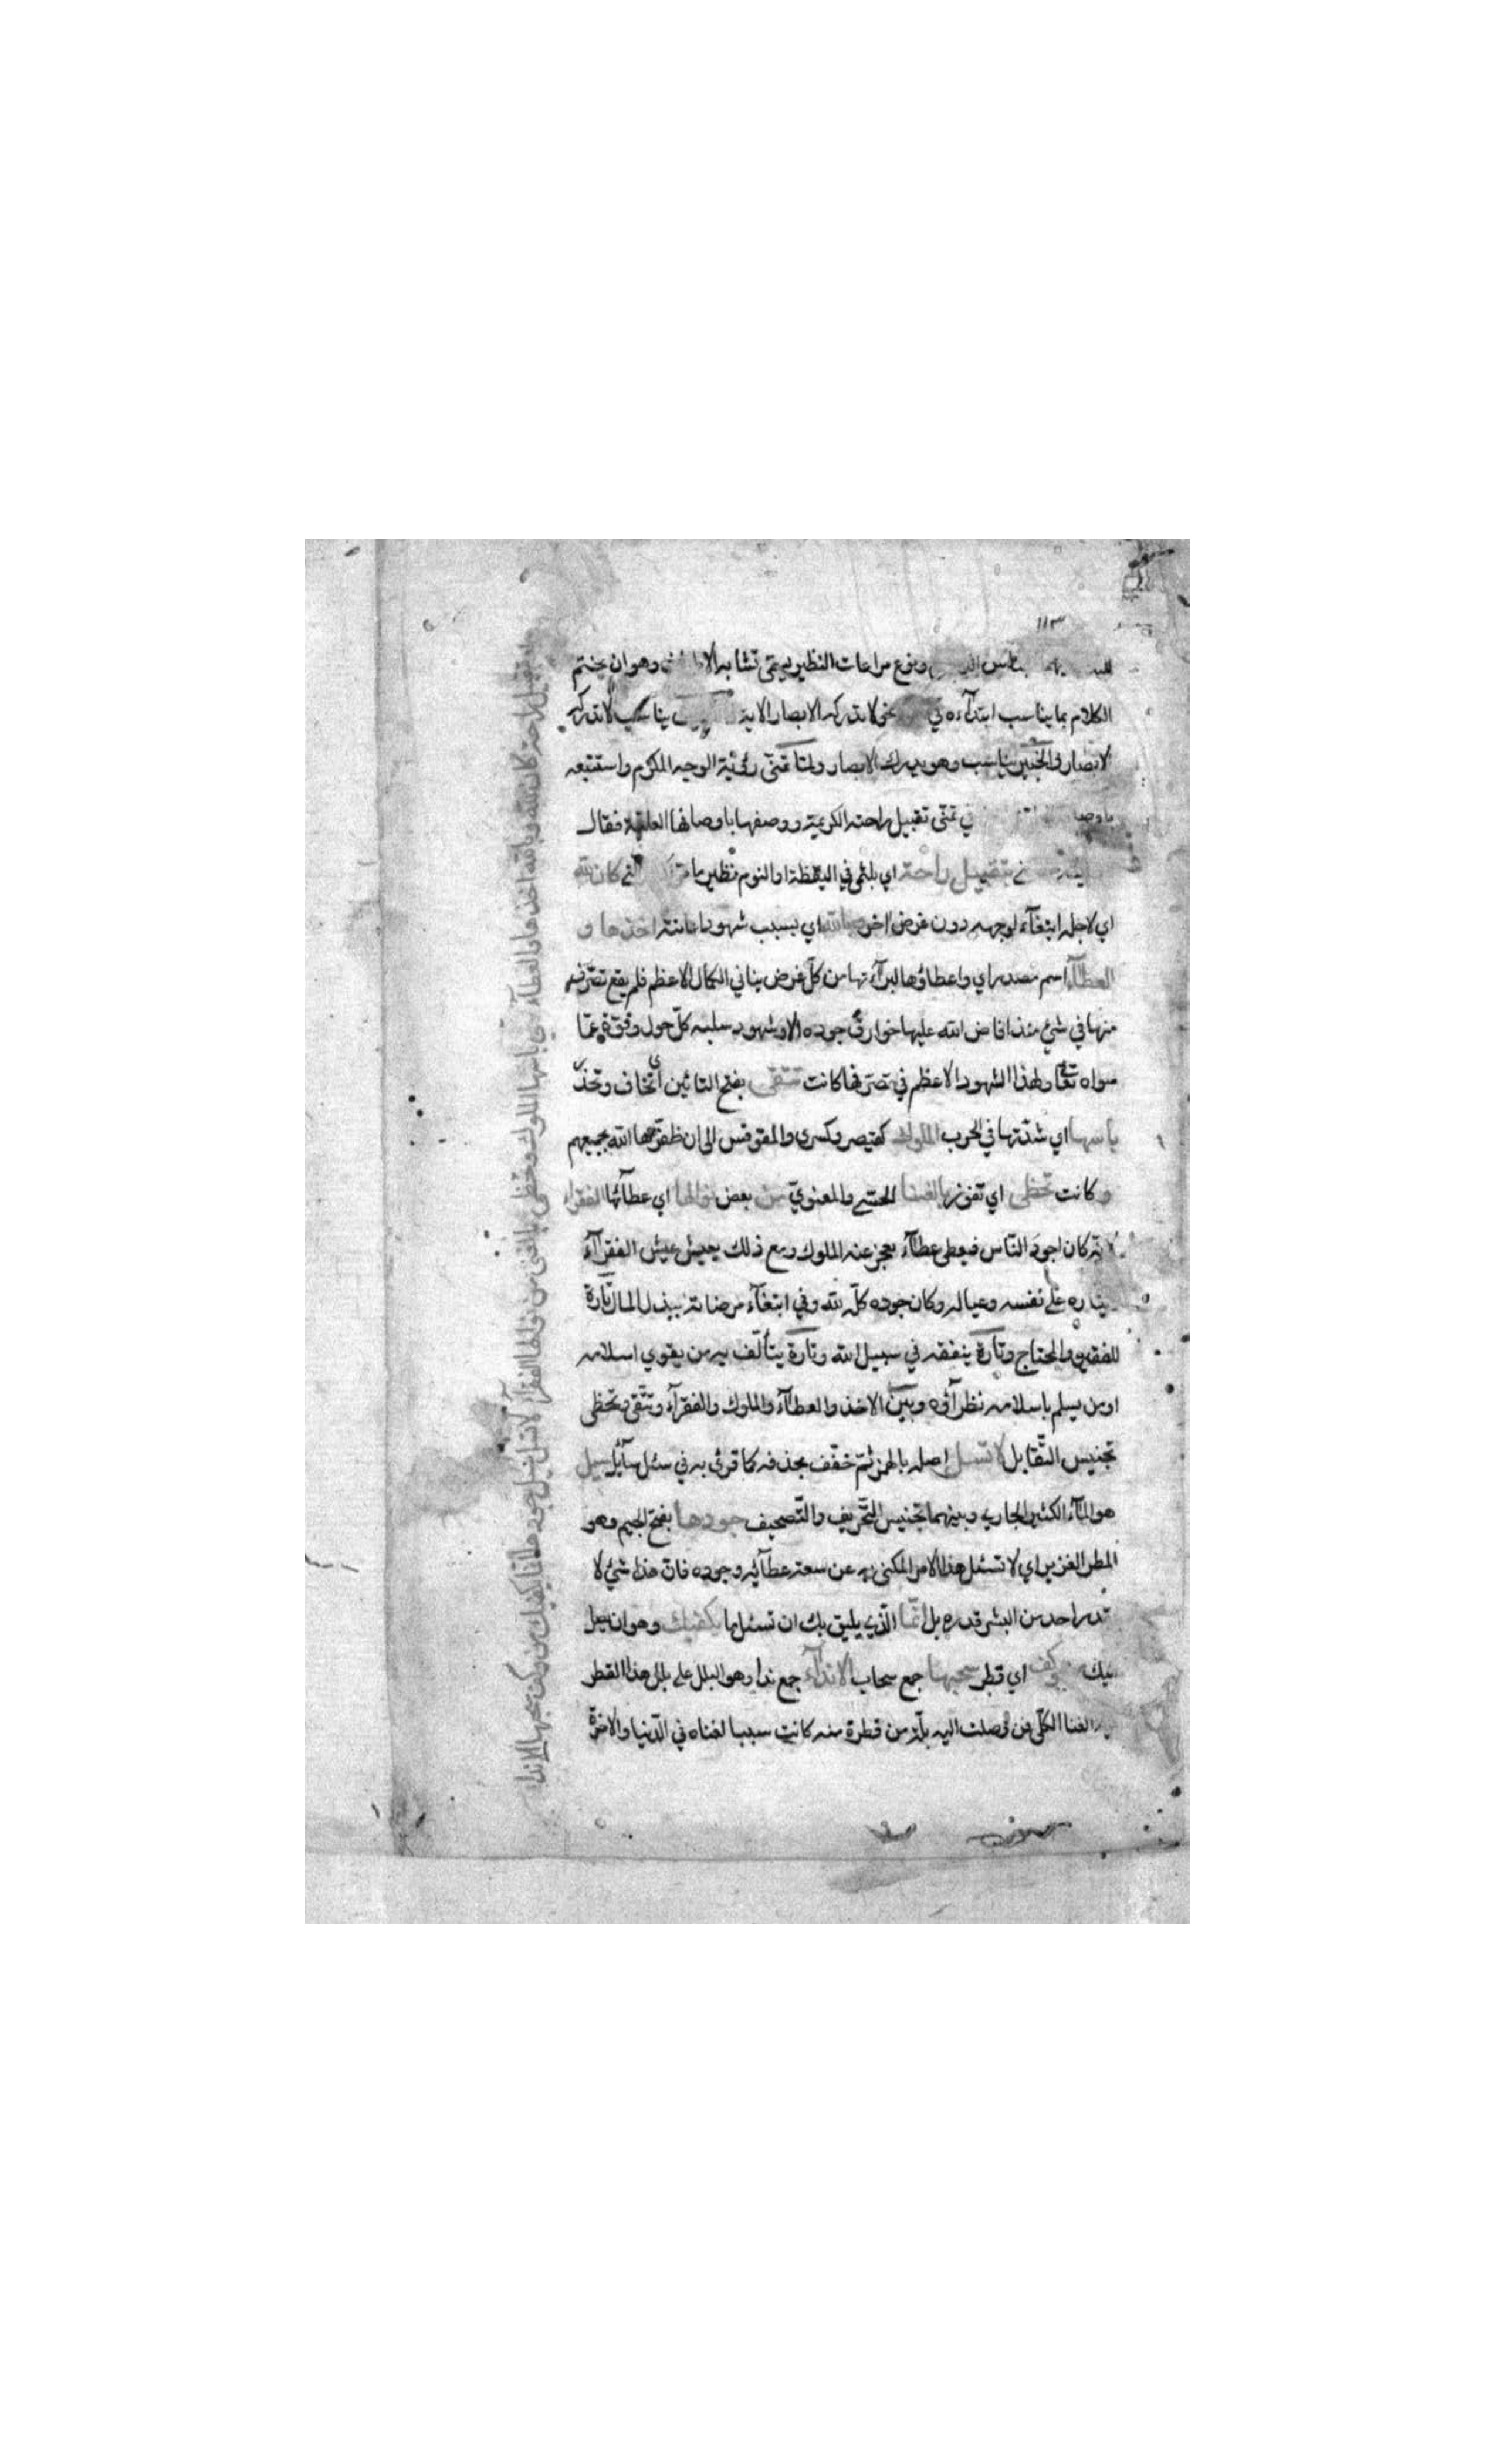 ١١٣
ونوع مراعات النظير يسمى تشابه وهو ان يختم
الكلام بما يناسب ابتدآءه في لا تدركه الابصار الاية يناسب لا تدركه
الابصار والخبير يناسب وهو يدرك الابصار ولما تمنى رؤية الوجه المكرم واستتبعه
في تمنى تقبيل راحته الكريمة ووصفها باوصافها العلية فقال
تقبيل راحة اي بلثمى في اليقظة او النوم نظير ما كان لله
اي لاجله ابتغآء لوجهه دون غرض اخر وبالله اي بسبب شهود اخذها و
العطآء اسم مصدر اي واعطاؤها لبرآءتها من كل غرض ينافي الكمال الاعظم فلم يقع تصرفه
منها في شئ منذ افاض الله عليها خوارق جوده الا وشهوده سلبه كل حول وقوة عمّا
سواه تعا ولهذا الشهود الاعظم في تصرفها كانت تتقى بفتح التائين اي تخاف وتحذر
باسها اي شدّتها في الحرب الملوك كقيصر وكسرى والمقوقس الى ان ظفرها الله بجميعهم
و كانت تحظى اي تفوز بالغنا الحسّي والمعنوي من بعض نوالها اي عطآئها الفقرآء
لانه كان اجود النّاس فيعطى عطآء يعجز عنه الملوك ومع ذلك يعيش عيش الفقرآء
على نفسه وعياله وكان جوده كلّه لله وفي ابتغآء مرضاته يبذل المال تارة
للفقير والمحتاج وتارة ينفقه في سبيل الله وتارة يتألّف به من يقوي اسلامه
او من يسلم باسلامه نظرآؤه وبين الاخذ والعطآء والملوك والفقرآء وتتّقى وتحظى
تجنيس التّقابل لا تسل اصله بالهمز ثمّ خفّف بحذفه كما قرئ به في سئل سآئل سيل
هو المآء الكثير الجاري وبينهما تجنيس التّحريف والتّصحيف جودها بفتح الجيم وهو
المطر الغزير اي لا تسئل هذا الامر المكنى به عن سعة عطآئه وجوده فان هذا شئ لا
احد من البشر قدره بل انّما الّذي يليق بك ان تسئل ما يكفيك وهو ان يصل
اليك من وكف اي قطر سحبها جمع سحاب الاندآء جمع ندا وهو البلل على بلل هذا القطر
الغنا الكلّي فمن وصلت اليه بلّة من قطرة منه كانت سببا لغناه في الدّنيا والاخرة
تقبيل راحة كان لله وبالله اخذها والعطآء تتقى باسها الملوك وتحظى بالغنى من نوالها الفقرآء لا تسل سيل جودها انما يكفيك من وكف سحبها الاندآء